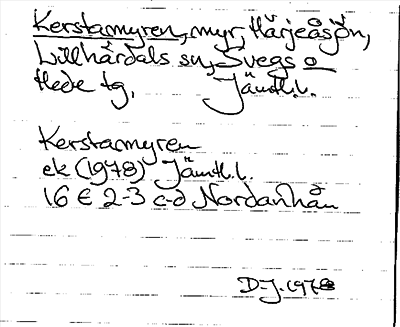 Kerstamyren, myr, Härjeåsjön,
Lillhärdals sn, Svegs o
Hede tg, Jämtl.l.
Kerstarmyren
ek (1978) Jämtl.l.
16 E 2-3 c-d Nordanhån
D-J. 1978